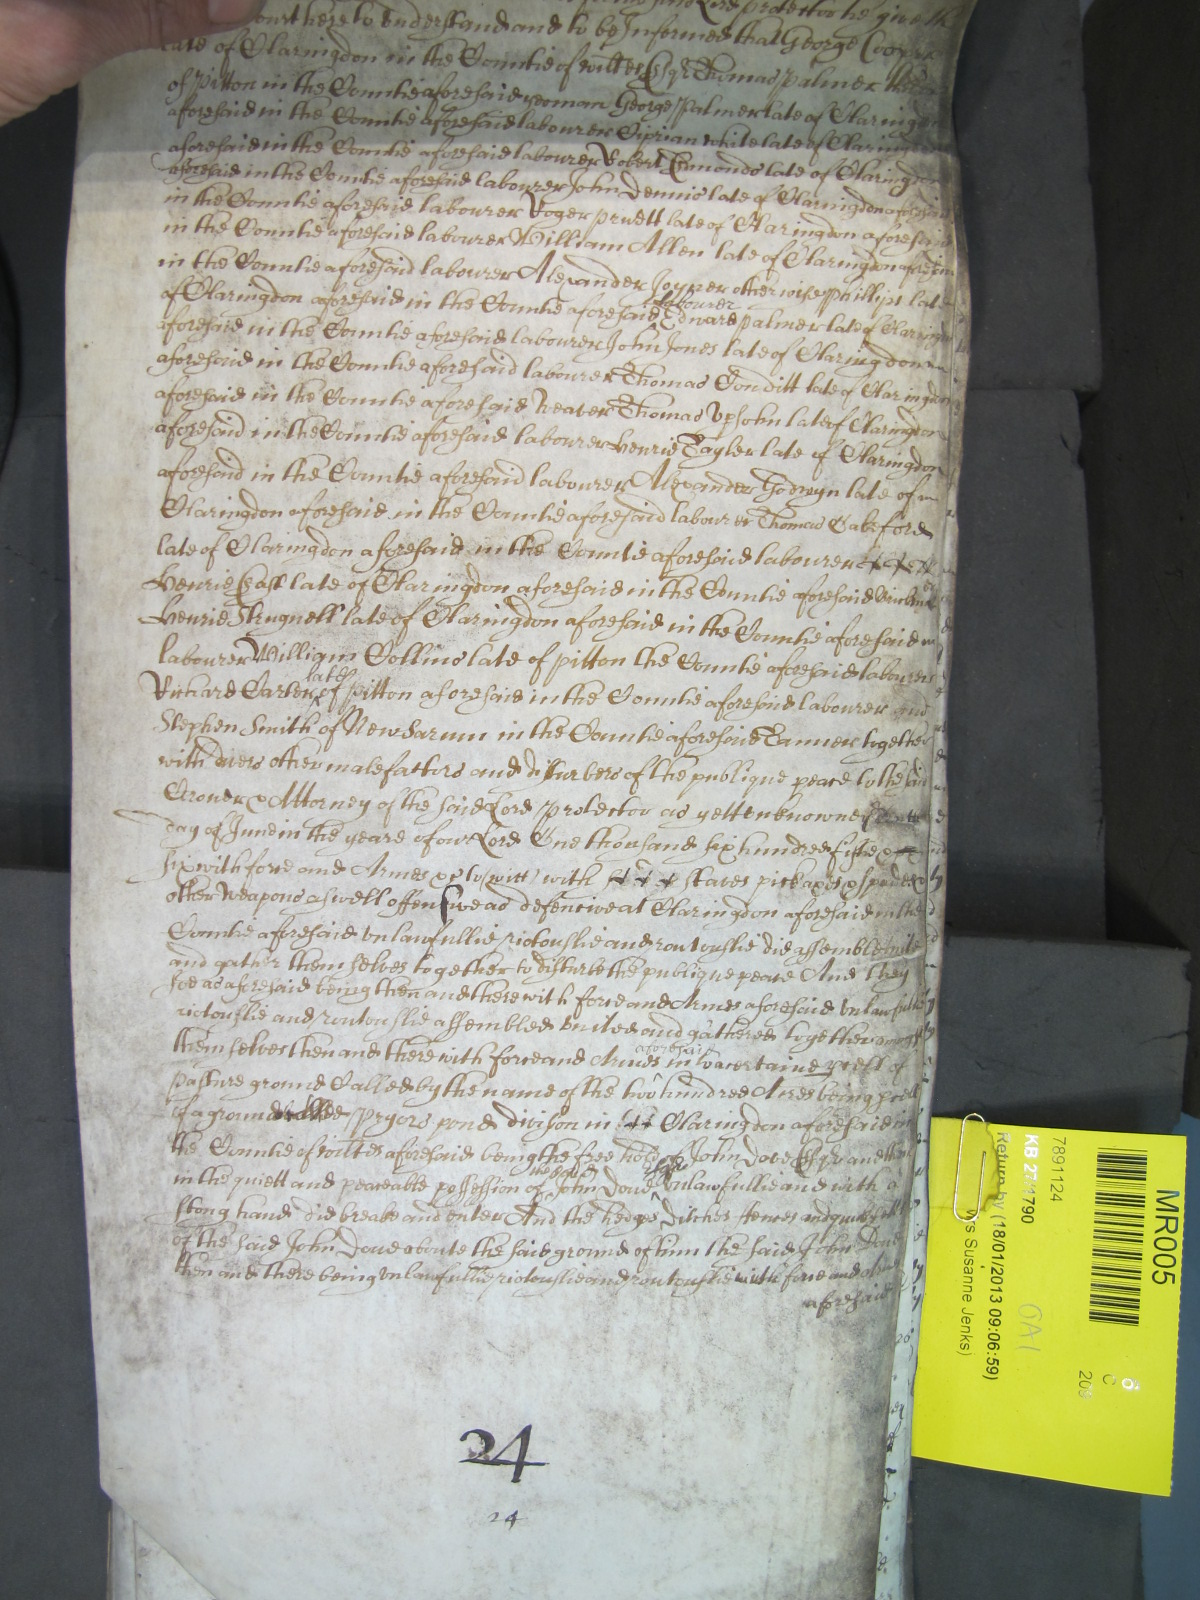 Lord protector he giveth
Court here to understand and to be Informed that George Cooper
late of Claringdon in the Countie of wiltes Esqr Thomas palmer
of pitton in the Countie aforesaid yeoman George palmer late of Claringdon
aforesaid in the Countie aforesaid labourer Ciprian white late of Claringdon
aforesaid in the Countie aforesaid labourer Robert Edmonds late of Claringdon
aforesaid in the Countie aforesaid labourer John Dennis late of Claringdon aforesaid
in the Countie aforesaid labourer Roger pruett late of Claringdon aforesaid
in the Countie aforesaid labourer William Allen late of Claringdon aforesaid
in the Countie aforesaid labourer Alexander Joyner otherwise phillips late
of Claringdon aforesaid in the Countie aforesaid labourer Edward palmer late of Claringdon
aforesaid in the Countie aforesaid labourer John Jones late of Claringdon
aforesaid in the Countie aforesaid labourer Thomas Conditt late of Claringdon
aforesaid in the Countie aforesaid weaver Thomas Upjohn late of Claringdon
aforesaid in the Countie aforesaid labourer Henrie Tayler late of Claringdon
aforesaid in the Countie aforesaid labourer Alexander Godwyn late of
Claringdon aforesaid in the Countie aforesaid labourer Thomas
late of Claringdon aforesaid in the Countie aforesaid labourer
Henrie late of Claringdon aforesaid in the Countie aforesaid
Henrie Strugnell late of Claringdon aforesaid in the Countie aforesaid
labourer William Collins late of pitton the Countie aforesaid labourer
Richard Carter late of pitton aforesaid in the Countie aforesaid labourer and
Stephen Smith of New Sarum in the Countie aforesaid Tanner together
with divers other malefactors and disturbers of the publique peace to the said
Croner & Attorney of the said Lord protector as yett unknowne
day of June in the yeare of our Lord One thousand six hundred fiftie &
six with force and Armes &c to witt with staves pickaxes spades &
other weapons aswell offensive as defencive at Claringdon aforesaid in the
Countie aforesaid unlawfullie riotouslie and routouslie did assemble unite
and gather themselves together to disturbe the publique peace And they
soe as aforesaid being then and there with force and Armes aforesaid unlawfullie
riotouslie and routouslie assembled united and gathered together amongst
themselves then and there with force and Armes aforesaid into a certaine peell of
pasture ground Called by the name of the two hundred Acres being peell
of a ground called pryors pond divison in Claringdon aforesaid in
the Countie of wiltes aforesaid being the free hold of John Dove Esqr and then
in the quiett and peaceable possession of the said John Dove Esqr unlawfullie and with a
strong hand did breake and enter And the hedges Ditches fences and quicksett
of the said John Dove aboute the said ground of him the said John Dove
then and there being unlawfullie riotouslie and routouslie with force and Armes
aforesaid
24
24
MR005
7891124
KB 27/1790
Return by (18/01/2013 09:06:59)
rs Susanne Jenks)
GA1
6
C